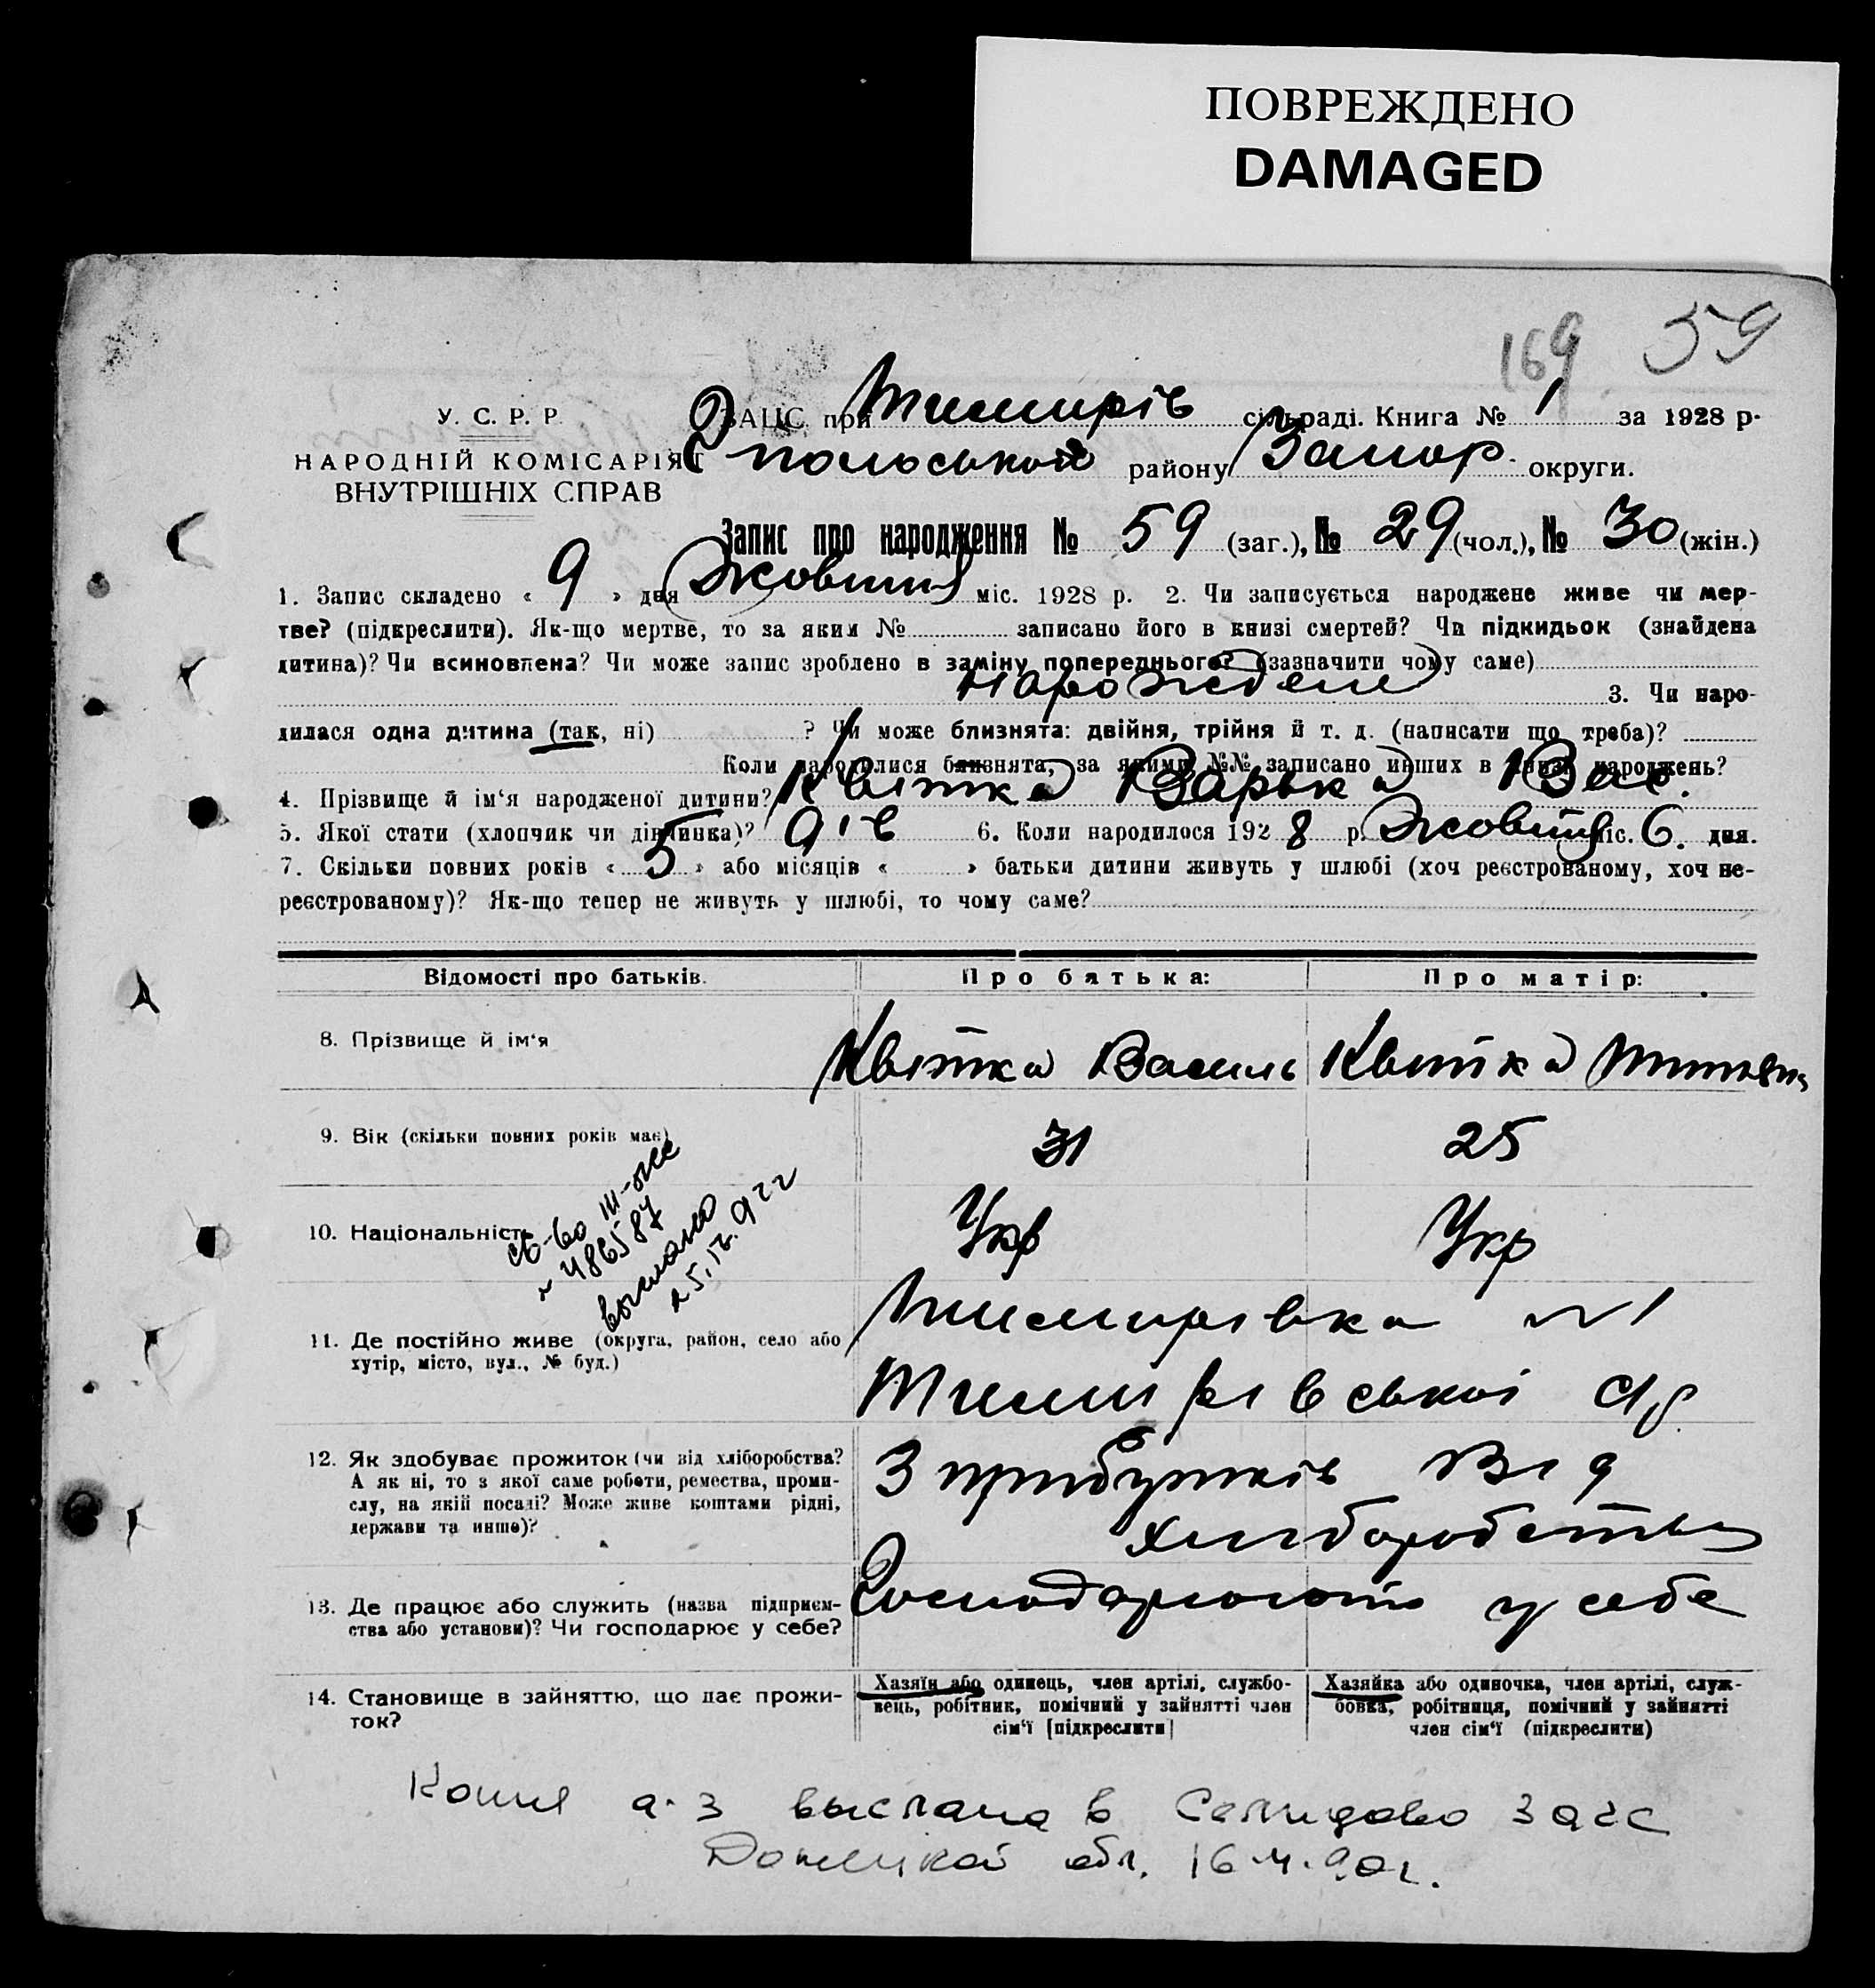 ПОВРЕЖДЕНО
DAMAGED
169 59
У. С. Р. Р.
НАРОДНІЙ КОМІСАРІЯТ
ВНУТРІШНІХ СПРАВ
ЗАЦС при Тимирів сільраді. Книга № 1 за 1928 р.
польської району Запор. округи.
Запис про народження № 59 (заг.), № 29 (чол.), № 30 (жін.)
1. Запис складено « 9 » дня Жовтня міс. 1928 р. 2. Чи записується народжене живе чи мер-
тве? (підкреслити). Як-що мертве, то за яким № записано його в книзі смертей? Чи підкидьок (знайдена
дитина)? Чи всиновлена? Чи може запис зроблено в заміну попереднього? (зазначити чому саме)
3. Чи наро-
дилася одна дитина (так, ні) ? Чи може близнята: двійня, трійня й т. д. (написати що треба)?
Коли народилися близнята, за якими №№ записано инших в книзі народжень?
4. Прізвище й ім‘я народженої дитини? Квітка Варька Вас.
5. Якої стати (хлопчик чи дівчинка)? дів 6. Коли народилося 1928 р. Жовтня міс. 6. дня.
7. Скільки повних років « 5 » або місяців « » батьки дитини живуть у шлюбі (хоч реєстрованому, хоч не-
реєстрованому)? Як-що тепер не живуть у шлюбі, то чому саме?
Відомості про батьків. Про батька: Про матір:
8. Прізвище й ім‘я Квітка Василь Квітка
9. Вік (скільки повних років має) 31 25
10. Національність Укр Укр
св-во III-
№ 486587
выслано
25.IV.92г
11. Де постійно живе (округа, район, село або
хутір, місто, вул., № буд.)
Тимирівка №1
Тимирівської с/р
12. Як здобуває прожиток (чи від хліборобства?
А як ні, то з якої саме роботи, ремества, проми-
слу, на якій посаді? Може живе коштами рідні,
держави та инше)?
З прибутків від
хліборобства
13. Де працює або служить (назва підприєм-
ства або установи)? Чи господарює у себе?
Господарюють у себе
14. Становище в зайняттю, що дає прожи-
ток?
Хазяїн або одинець, член артілі, службо-
вець, робітник, помічний у зайнятті член
сім‘ї [підкреслити]
Хазяйка або одиночка, член артілі, служ-
бовка, робітниця, помічний у зайнятті
член сім‘ї (підкреслити)
Копия а.з выслана в Селидово загс
Донецкой обл. 16.4.90г.